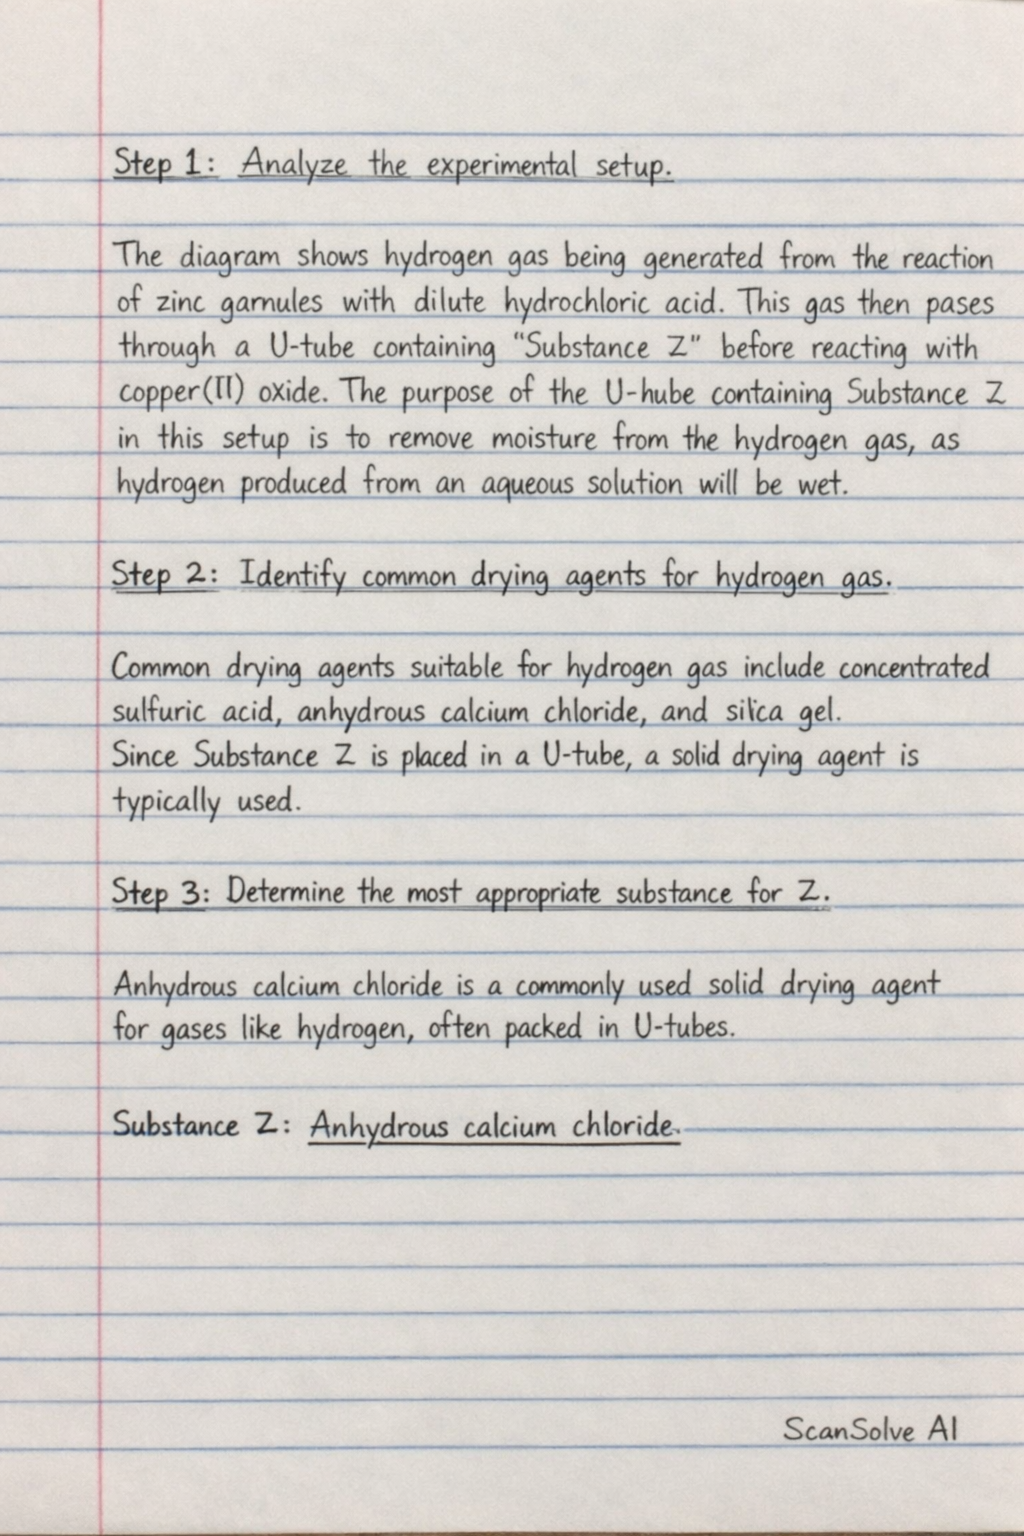 Step 1: Analyze the experimental setup.
The diagram shows hydrogen gas being generated from the reaction
of zinc garnules with dilute hydrochloric acid. This gas then pases
through a U-tube containing “Substance Z” before reacting with
copper(II) oxide. The purpose of the U-hube containing Substance Z
in this setup is to remove moisture from the hydrogen gas, as
hydrogen produced from an aqueous solution will be wet.
Step 2: Identify common drying agents for hydrogen gas.
Common drying agents suitable for hydrogen gas include concentrated
sulfuric acid, anhydrous calcium chloride, and silica gel.
Since Substance Z is placed in a U-tube, a solid drying agent is
typically used.
Step 3: Determine the most appropriate substance for Z.
Anhydrous calcium chloride is a commonly used solid drying agent
for gases like hydrogen, often packed in U-tubes.
Substance Z: Anhydrous calcium chloride.
ScanSolve AI